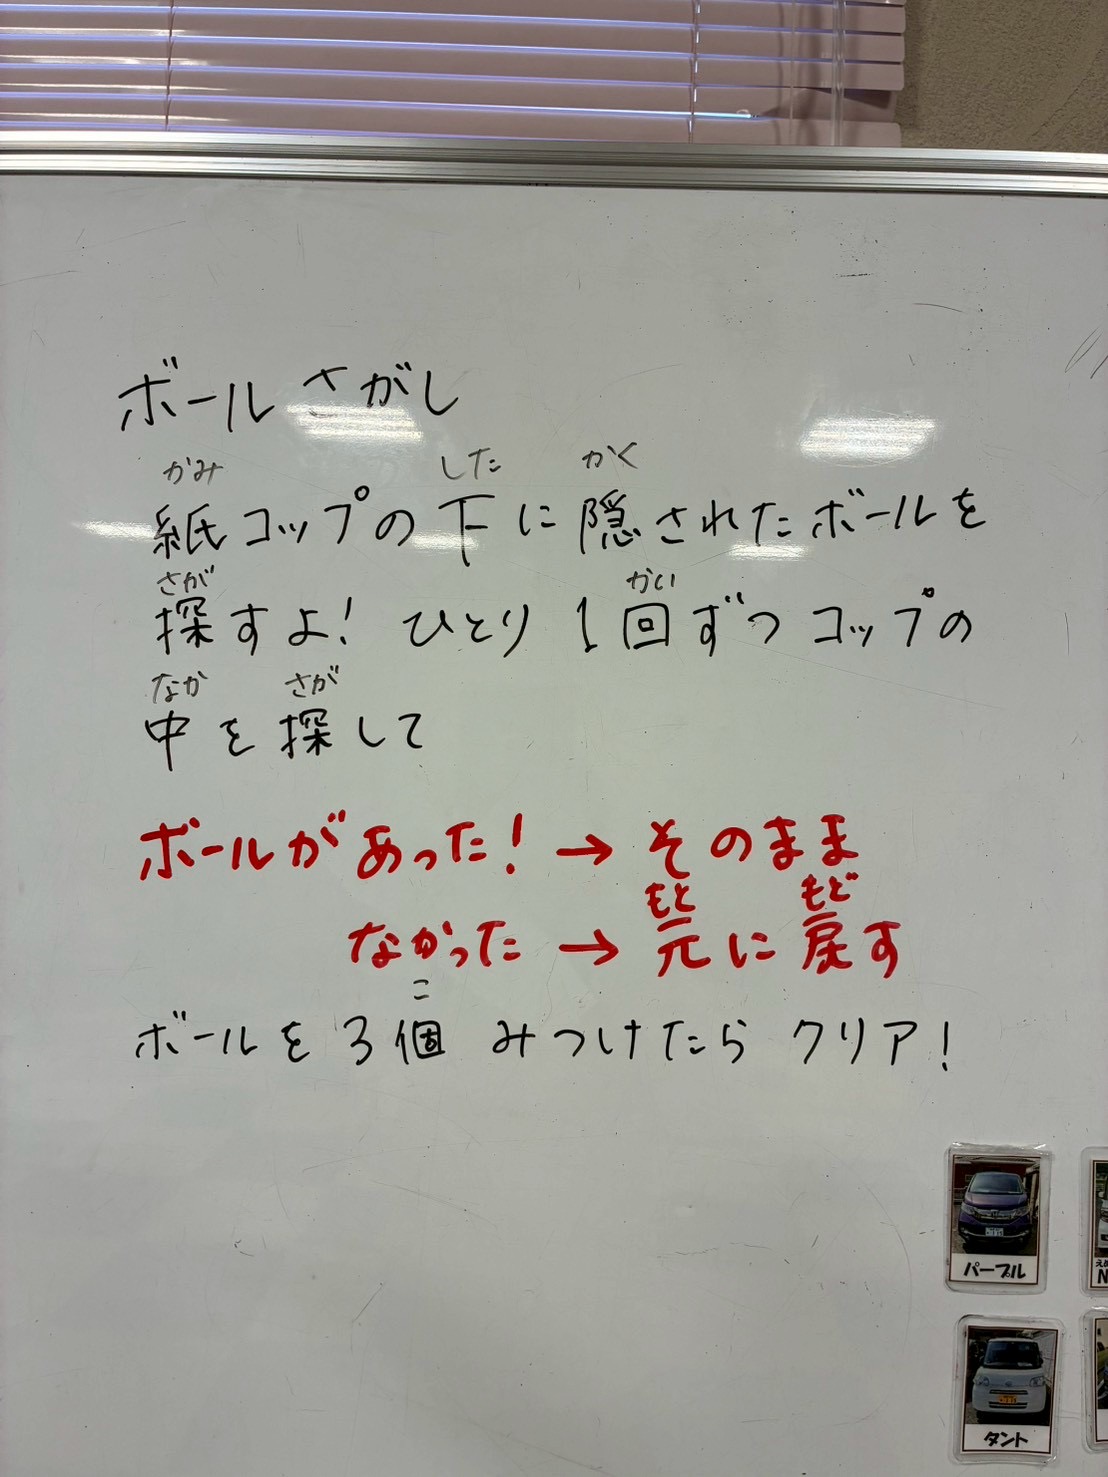 ボールさがし
かみ した かく
紙コップの下に隠されたボールを
さが かい
探すよ! ひとり1回ずつコップの
なか さが
中を探して
ボールがあった!→そのまま
もと もど
なかった→元に戻す
こ
ボールを3個 みつけたら クリア!
パープル
タント